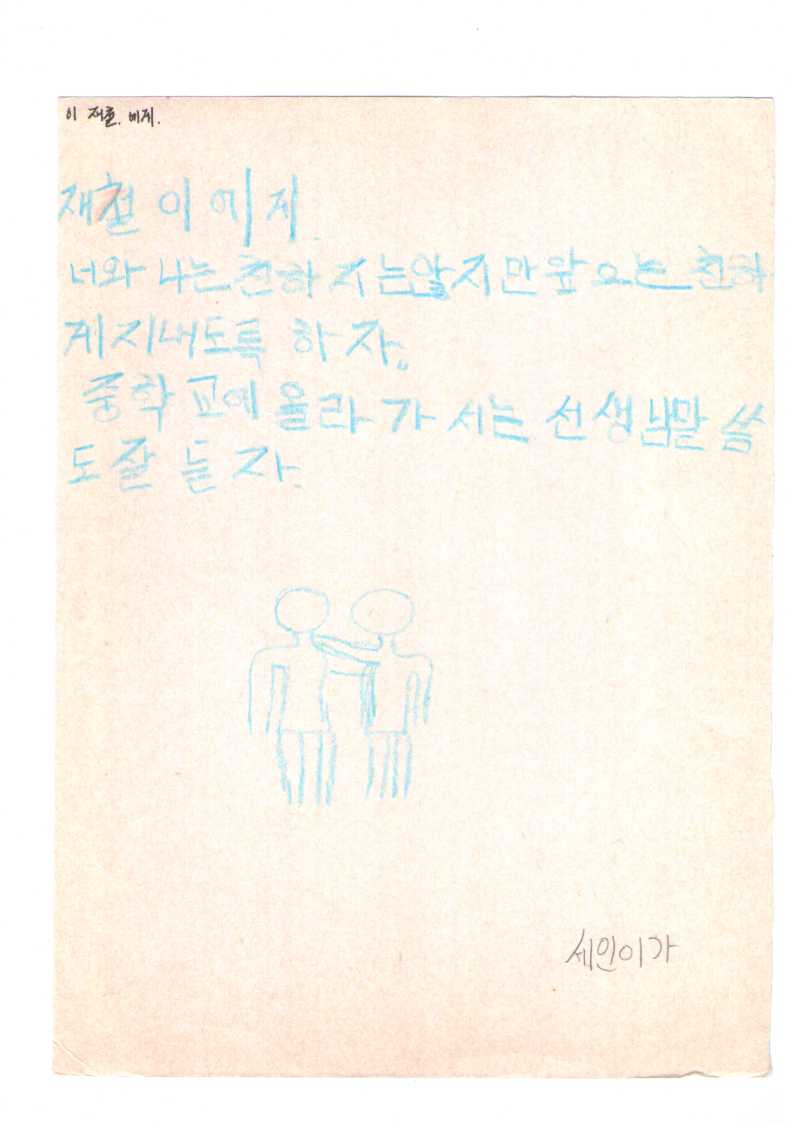 이 재흔. 에게.
재현이에게
너와 나는 친하지는않지만앞으는 친하
게지내도록 하자.
중학교에 올라가서는 선생님말씀
도잘 듣자.
세인이가